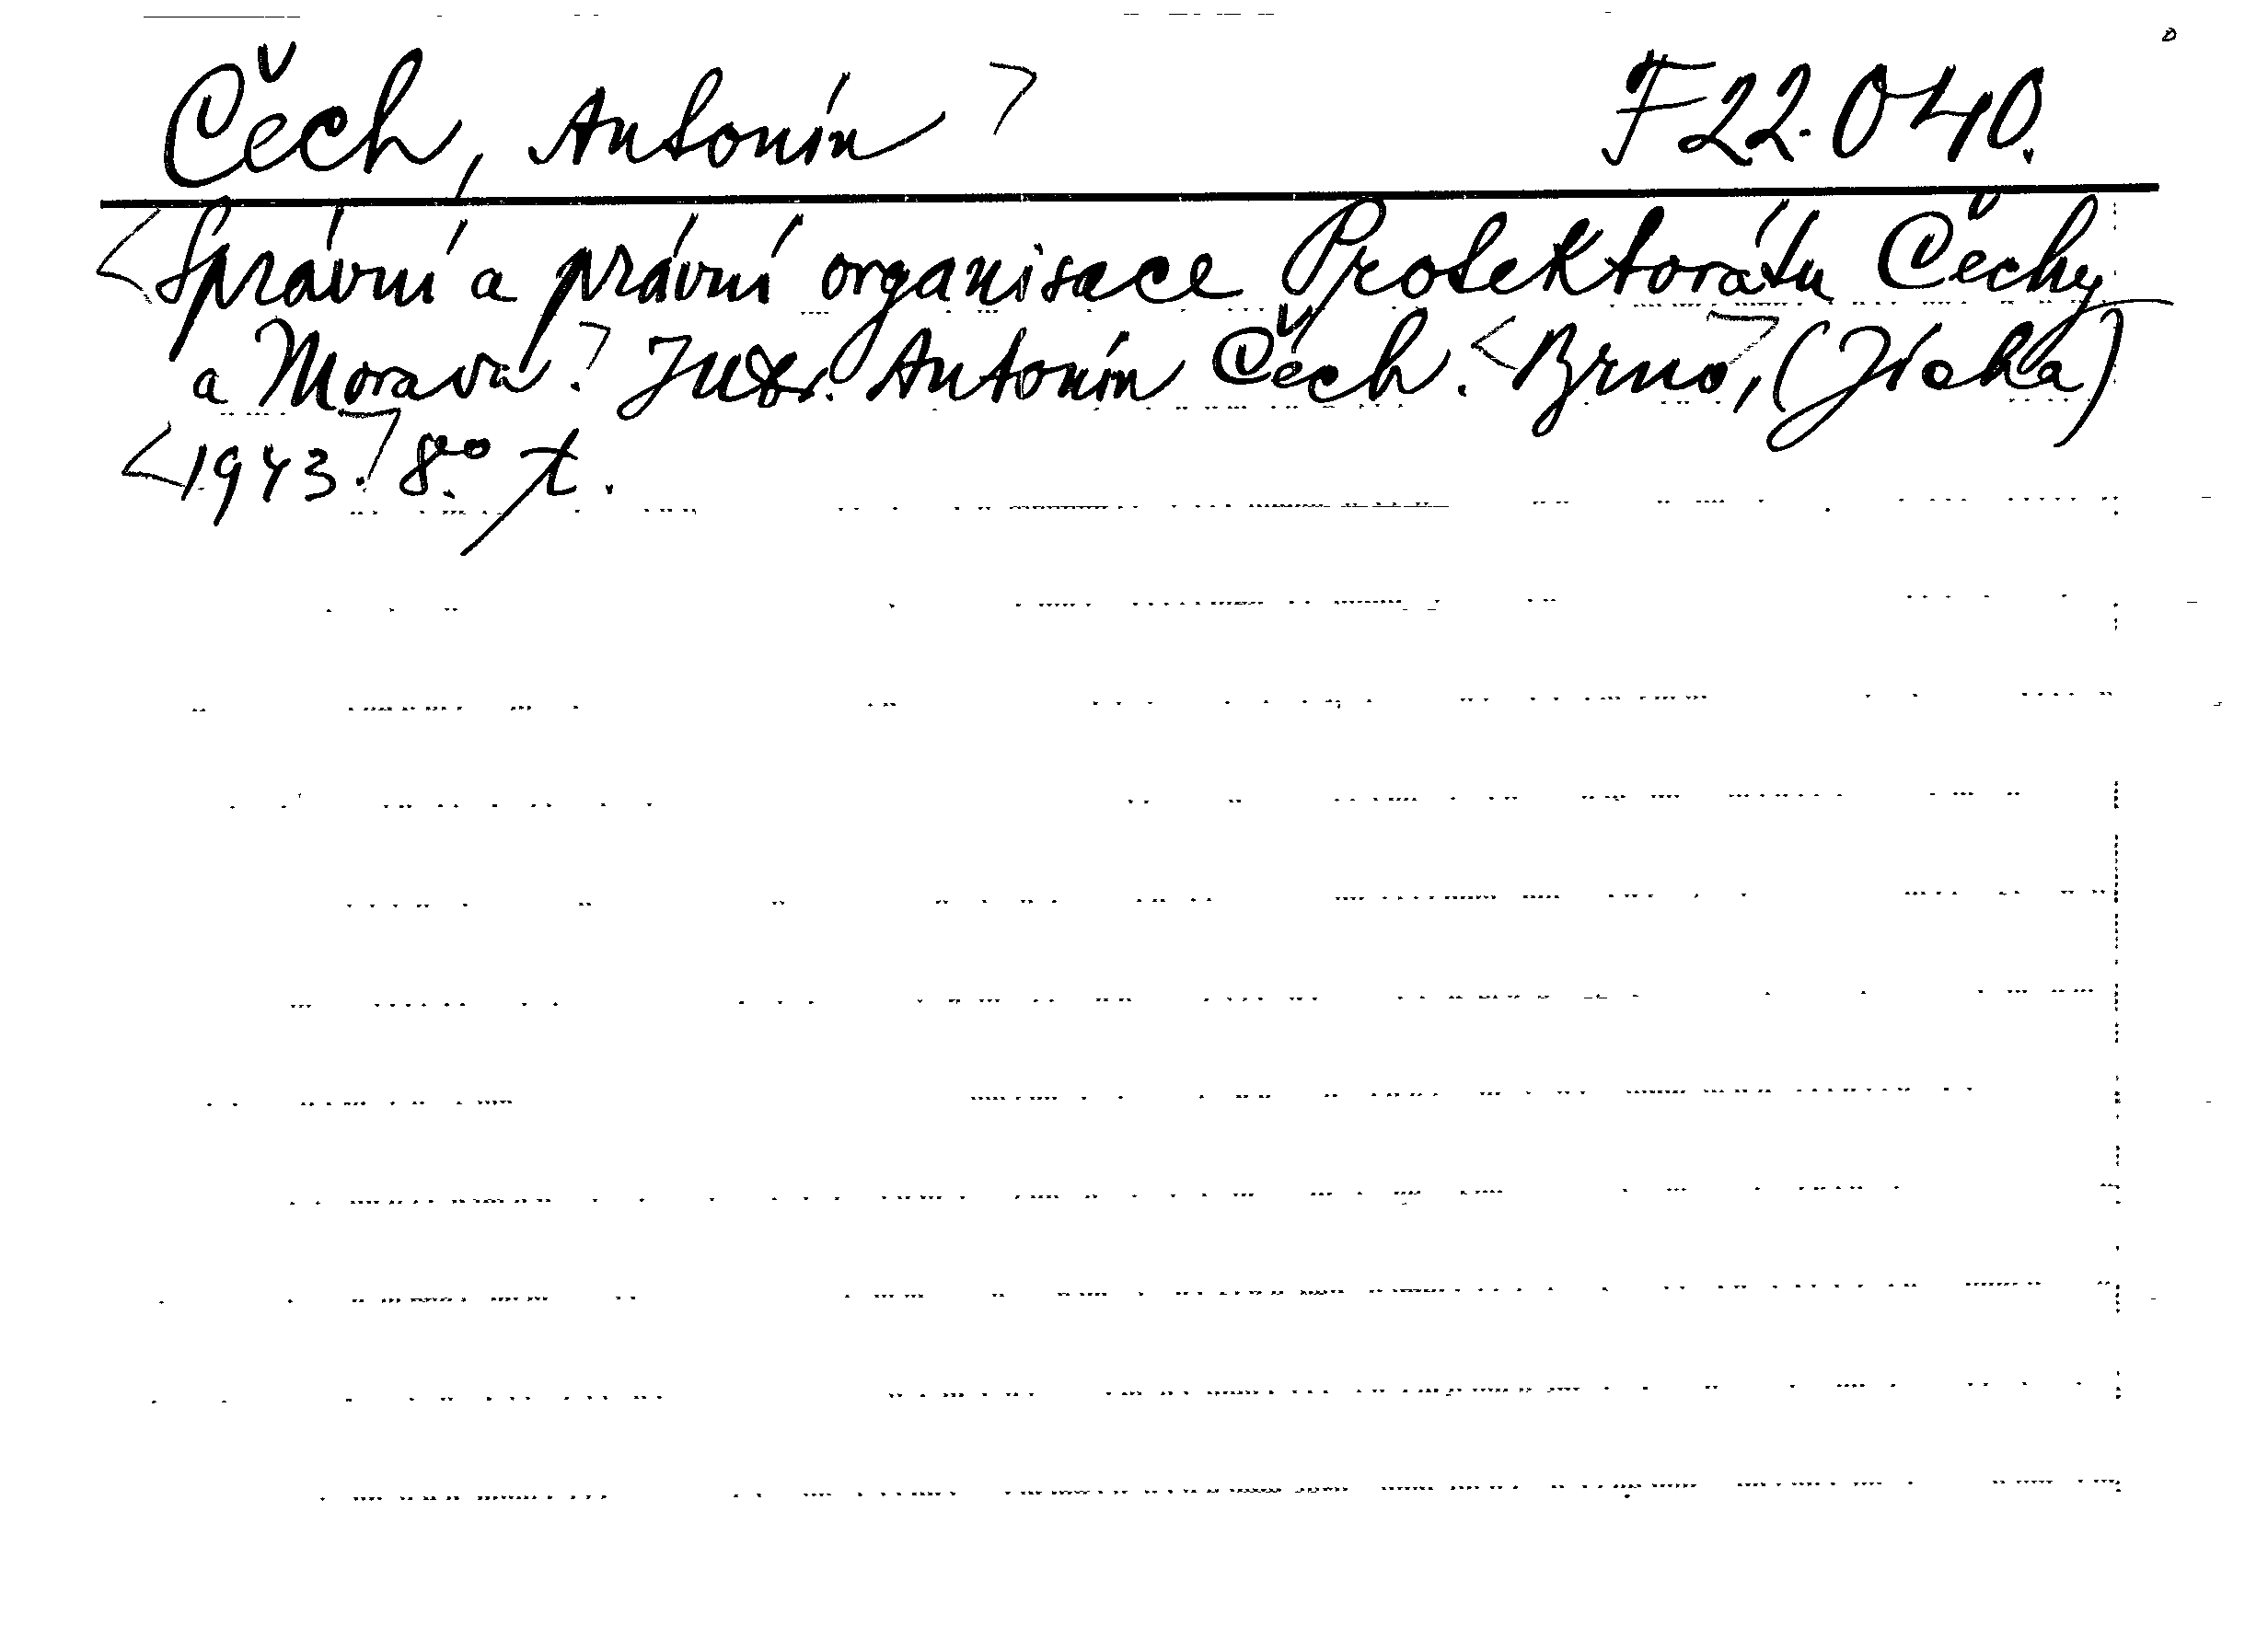 Čech, Antonín> F22.040.
<Správní a právní organisace Protektorátu Čechy
a Morava.> JUDr. Antonín Čech. <Brno>, (Jícha)
<1943.> 8° t.